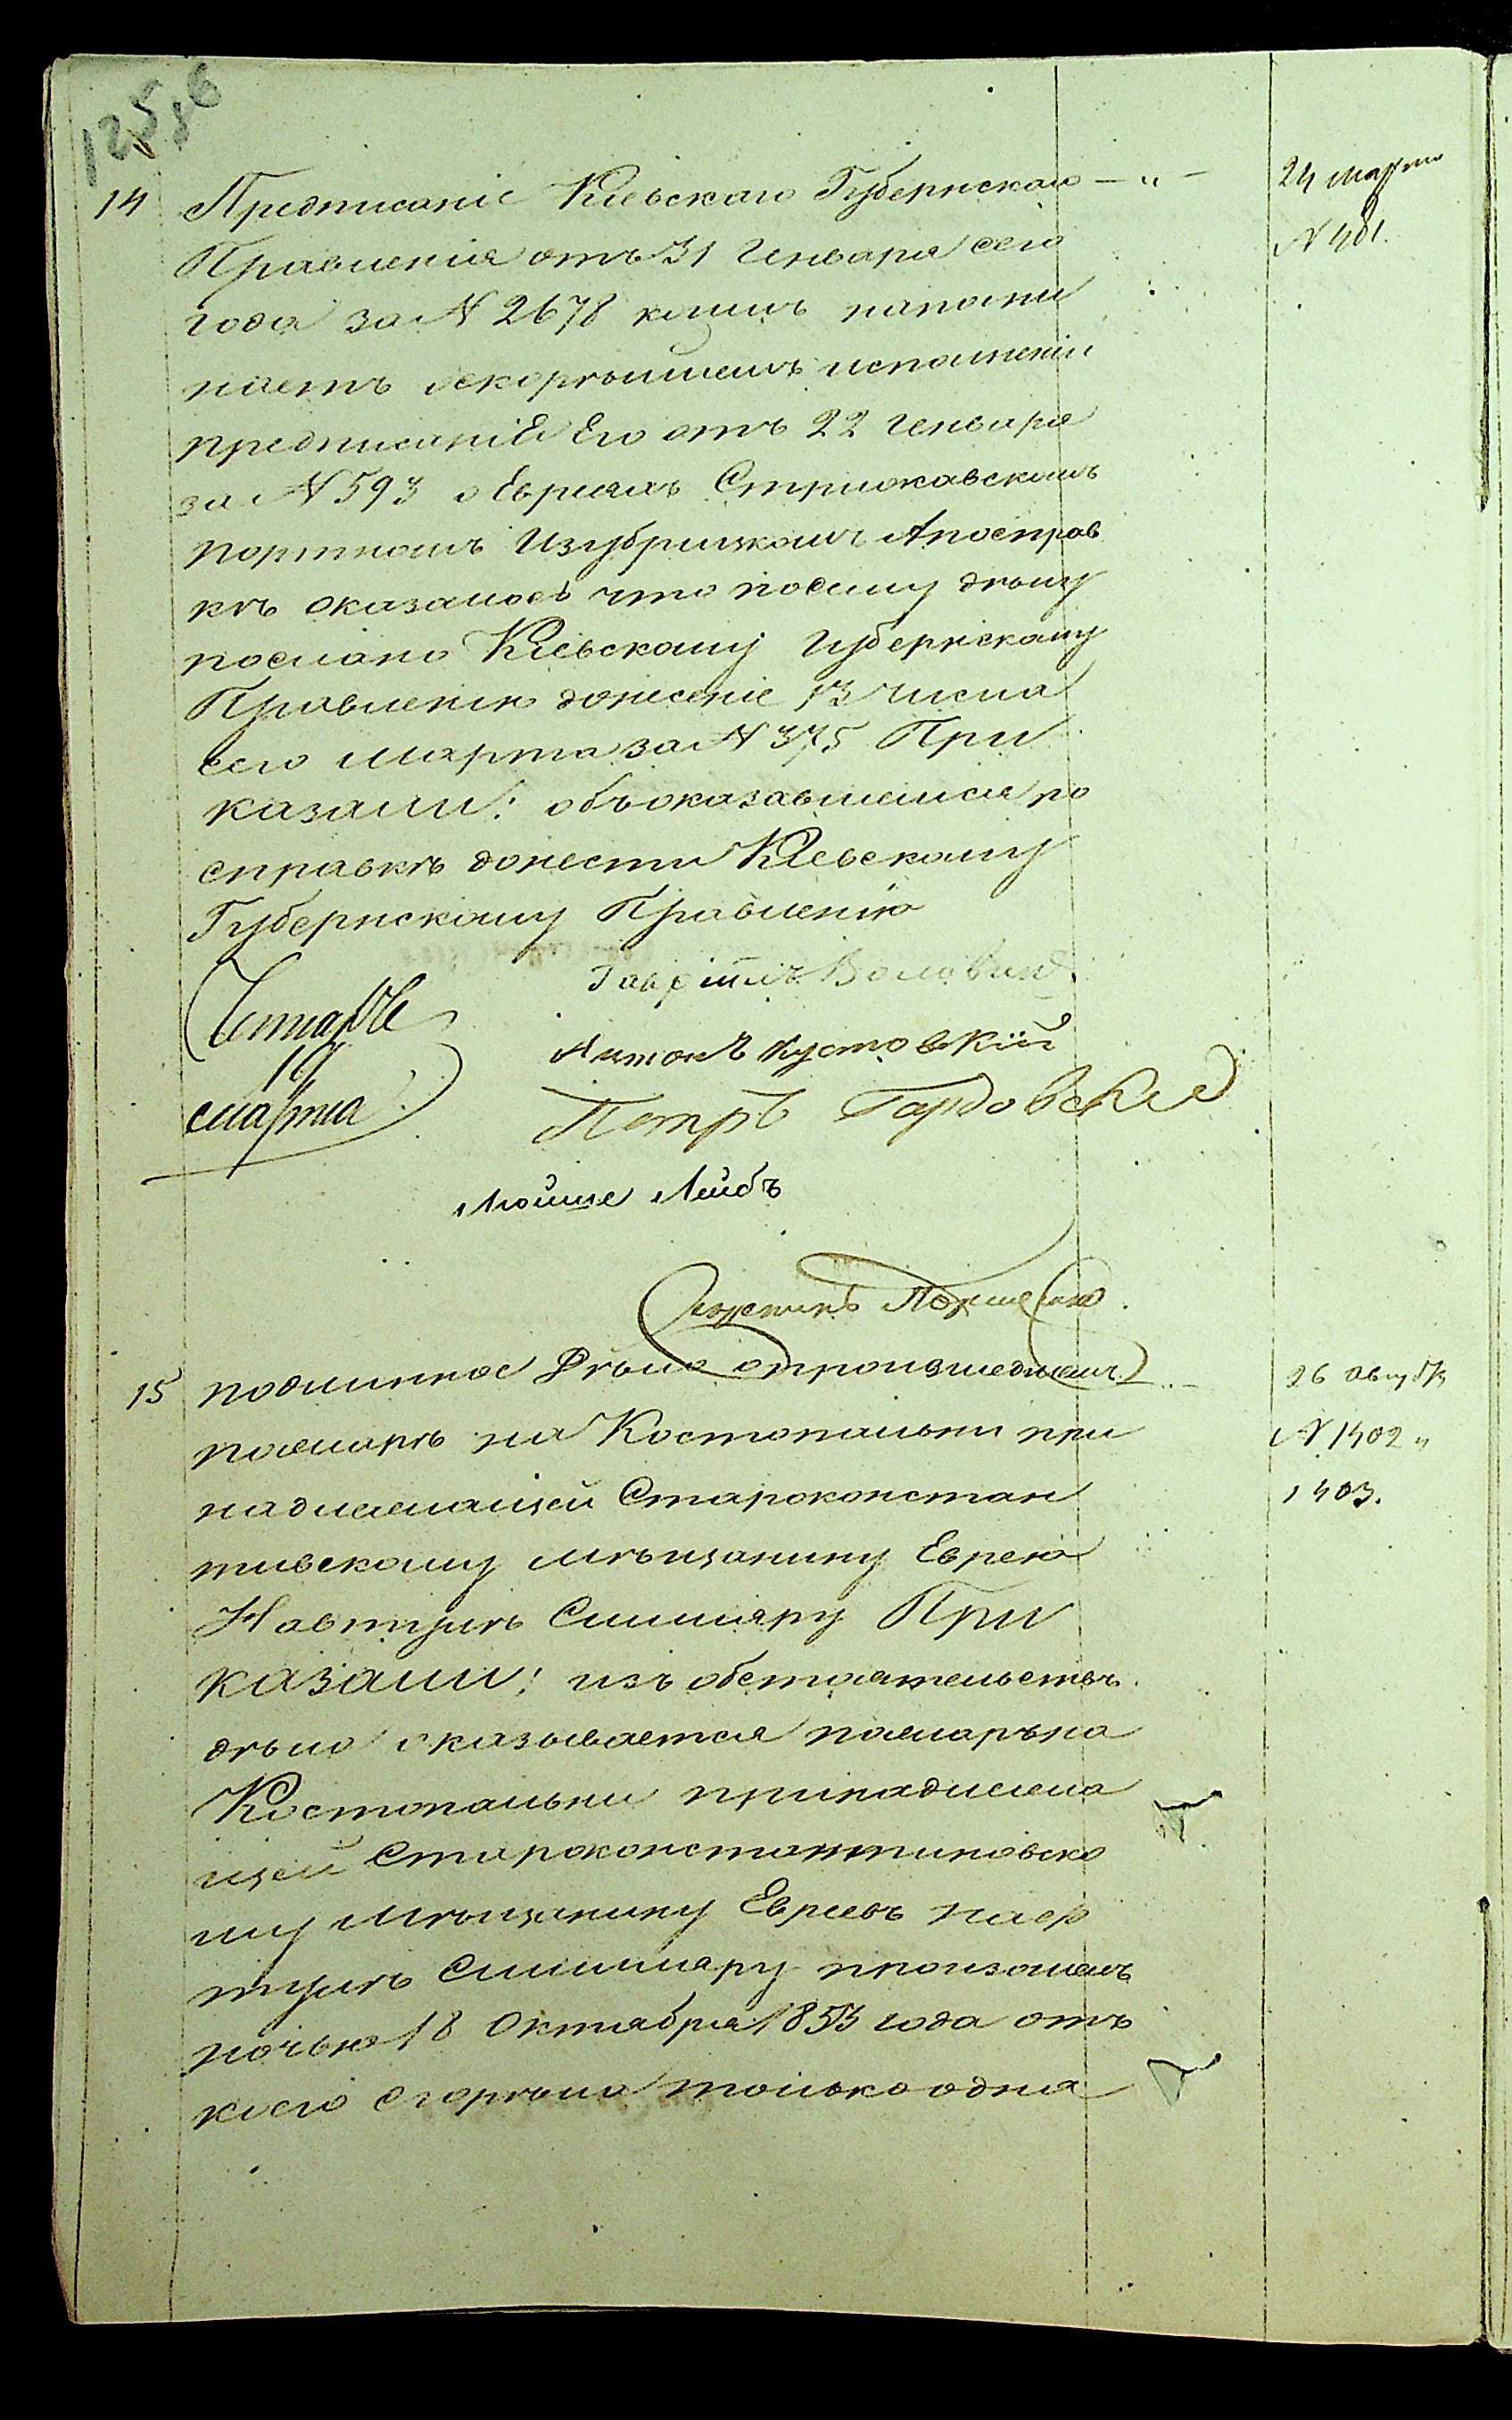 14 Предписаніе Кіевскаго Губернскаго — „ — 24 марта
Правленія отъ 31 Генваря сего
года за № 2678 коимъ напоми
наетъ оскорѣйшемъ исполненіи
предписанія Его отъ 22 Генваря
за № 593 о Евреяхъ Стрижавскомъ
Портномъ Изубрицкомъ Апосправ
кѣ оказалось что посему дѣлу
послано Кіевскому Губернскому
Правленію донесеніе 13 числа
сего Марта за № 375 При
казали: объоказавшемся по
справкѣ донести Кіевскому
Губернскому Правленію
Гавріилъ
19 Антонъ Кустовкій
марта Петръ Гардовскій
Мойше Лейбъ
15 подлинное Дѣло опроизшедшемъ
пожарѣ на Костопальни при 1402 „
надлежащей Староконстан 1403.
тивскому мѣщанину Еврею
Навтулѣ Симмяру При
казали: изъ обстоятельствъ
дѣло оказывается пожаръна
Костопальни принадлежа
щей Староконстантиновско
му мѣщанину Евреевъ
Симмяру произошелъ
ночью 18 Октября 1853 года отъ
коего сгорѣло только одна